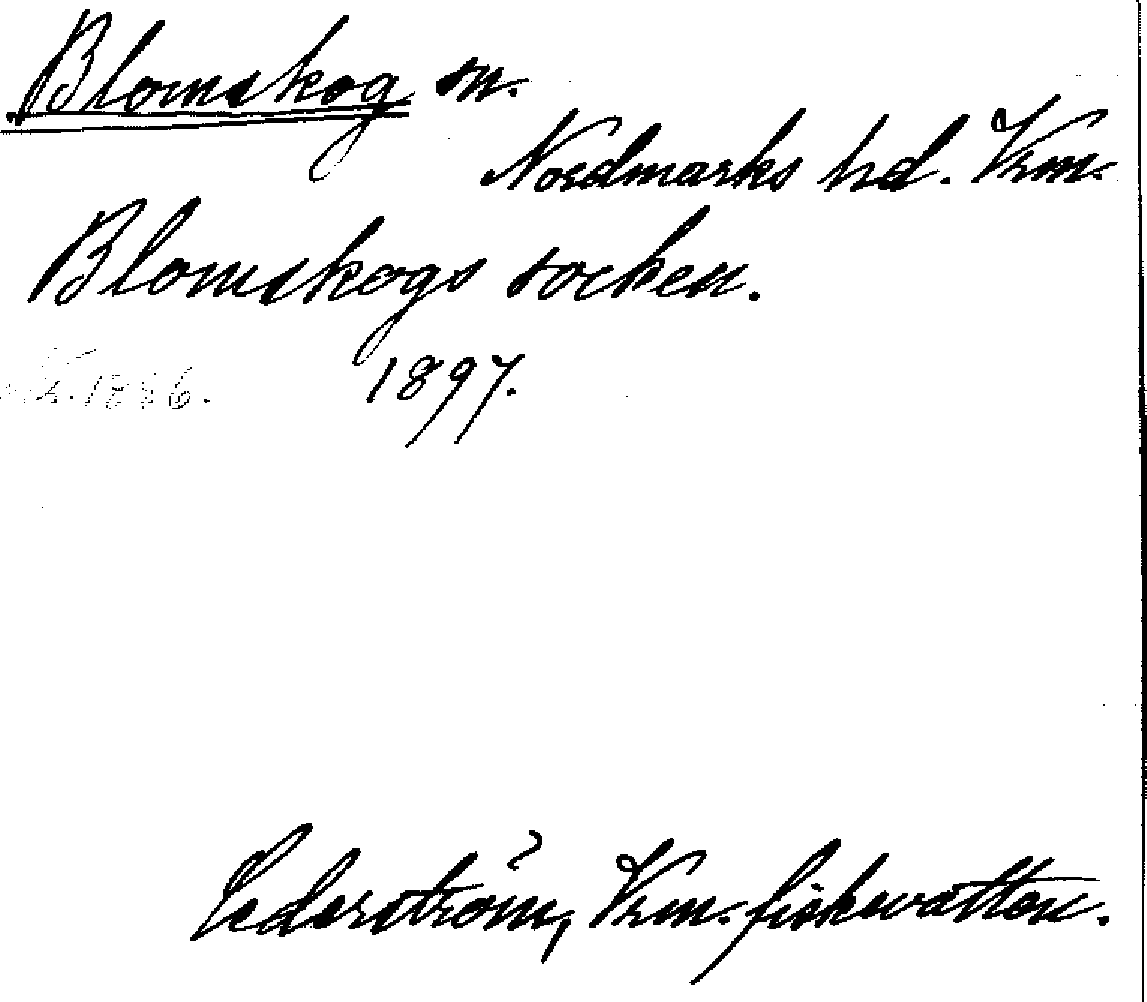 Blomskog sn.
Nordmarks hd. Vrm.
Blomskogs socken.
1897.
Cederström, Vrm. fiskevatten.